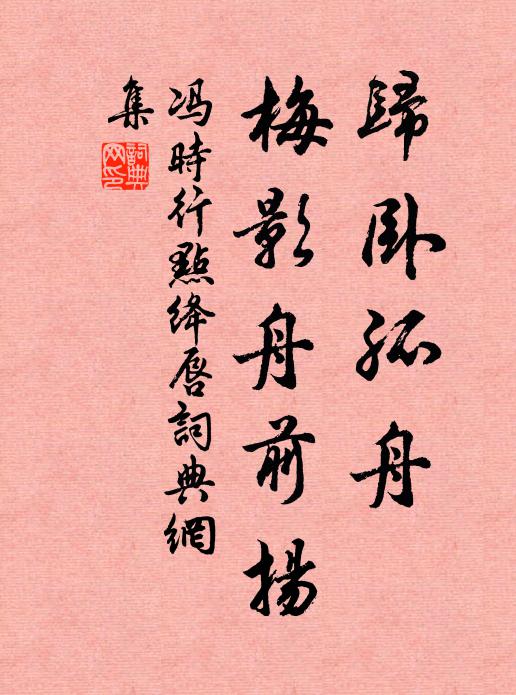 歸臥孤舟
梅影舟前揚
冯時行點绛唇詞典網
集
詞典
网印